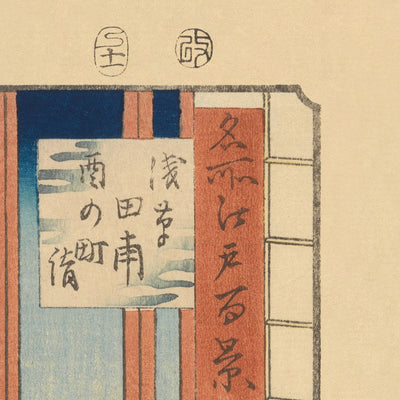 改
巳十一
名所江戸百景
浅草
田甫
酉の町
詣